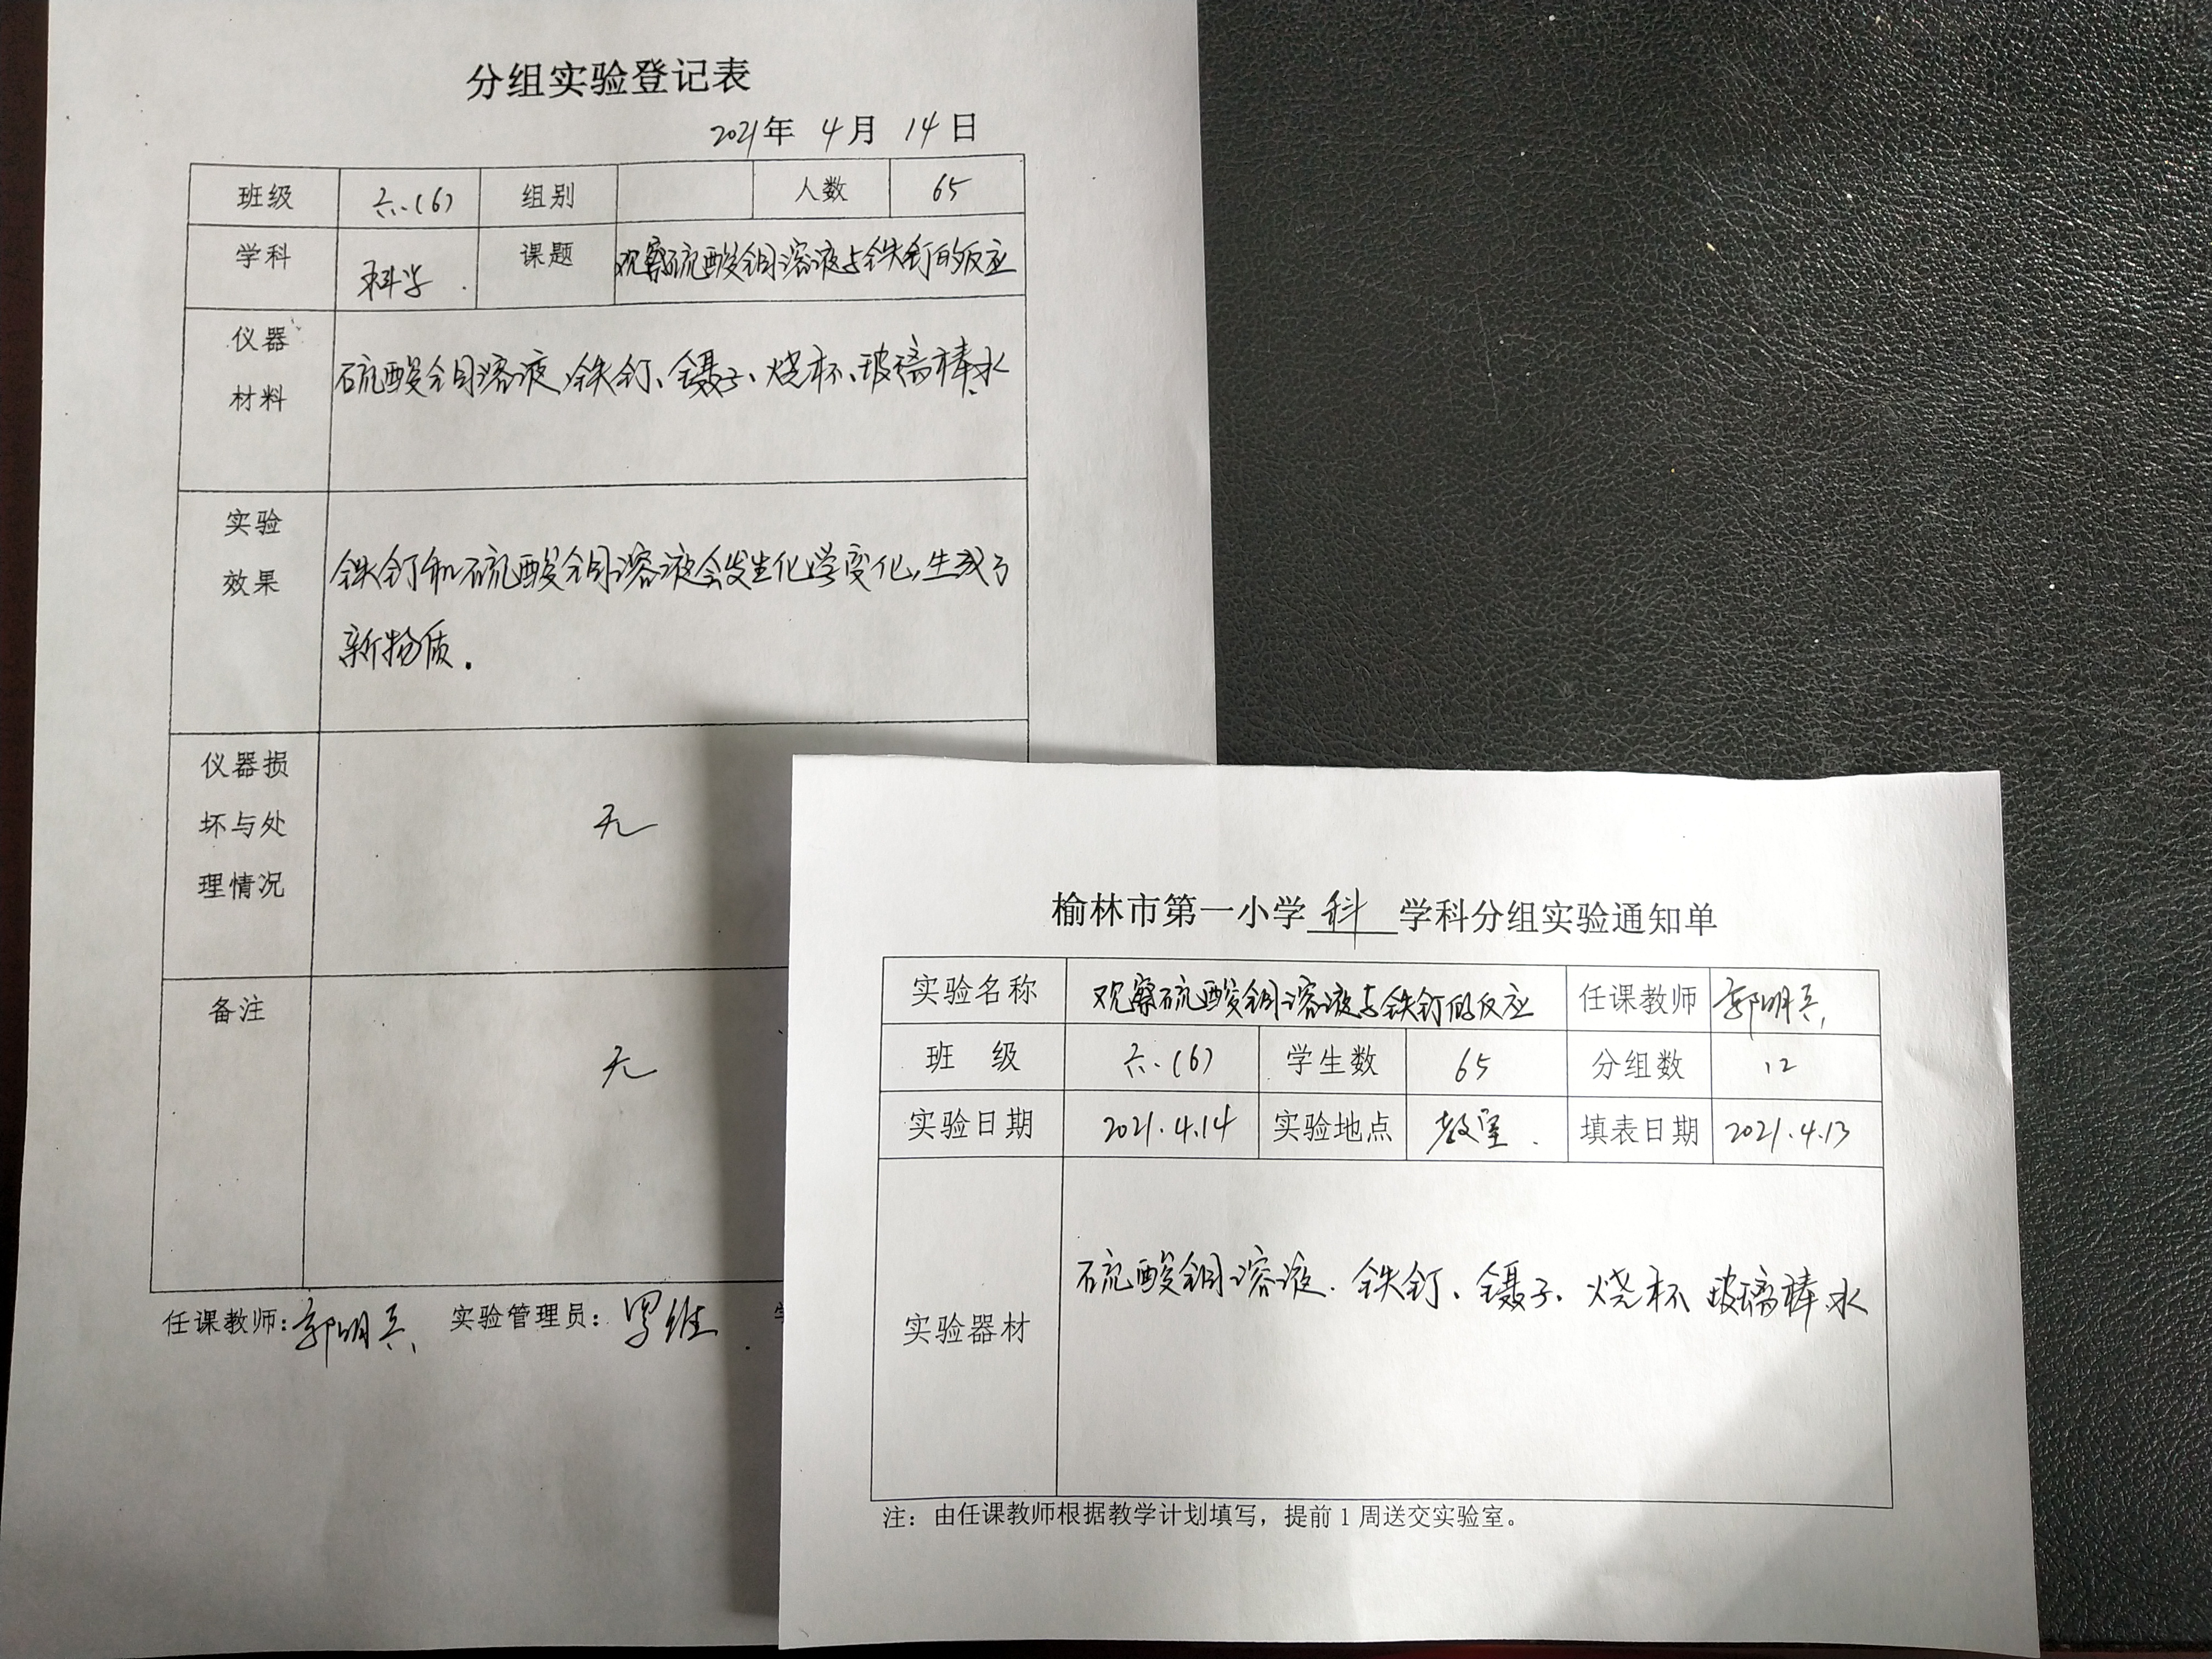 分组实验登记表
2021年 4月 14日
班级 六.(6) 组别 人数 65
学科 科学. 课题 观察硫酸铜溶液与铁钉的反应
仪器
材料
硫酸铜溶液、铁钉、镊子、烧杯、玻璃棒、水
实验
效果
铁钉和硫酸铜溶液会发生化学变化,生成了
新物质.
仪器损
坏与处
理情况
无
备注
无
任课教师:郭明兵 实验管理员:
榆林市第一小学 科 学科分组实验通知单
实验名称 观察硫酸铜溶液与铁钉的反应 任课教师 郭明兵
班 级 六.(6) 学生数 65 分组数 12
实验日期 2021.4.14 实验地点 教室. 填表日期 2021.4.13
实验器材
硫酸铜溶液.铁钉、镊子、烧杯 玻璃棒 水
注：由任课教师根据教学计划填写，提前1周送交实验室。